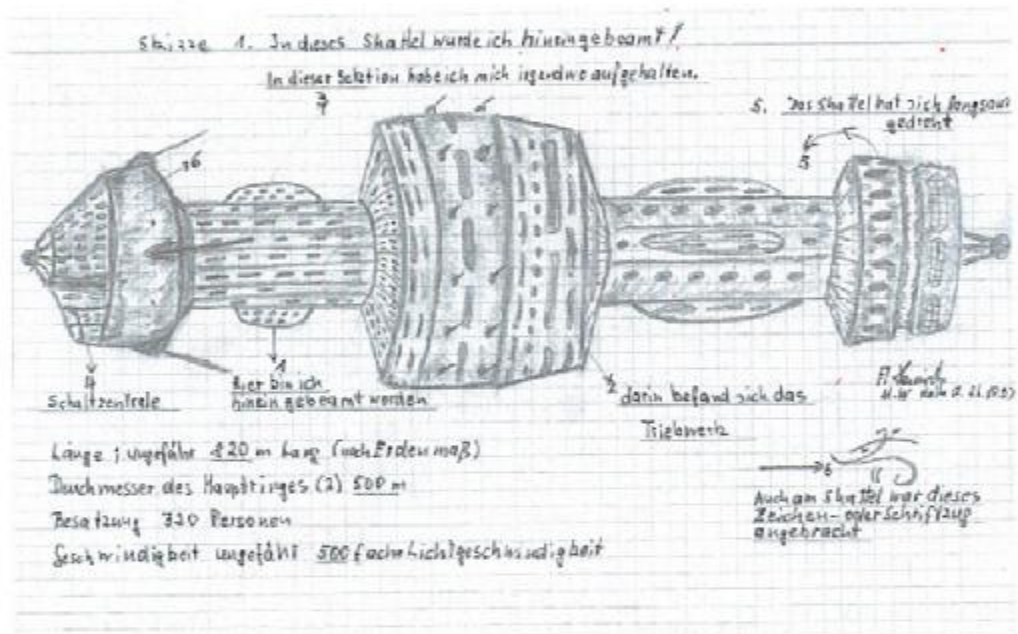 Skizze 1. In dieses Shattel wurde ich hineingebeamt!
In dieser Sektion habe ich mich irgendwo aufgehalten.
5. Das Shattel hat sich langsam
gedreht
5
6
1
4
Schaltzentrale
Hier bin ich
hinein gebeamt worden
2 darin befand sich das
Triebwerk
Länge ; ungefähr 820 m lang (nach Erdenmaß)
Durchmesser des Hauptringes (2) 500 m
Besatzung 320 Personen
Geschwindigkeit ungefähr 500 fache Lichtgeschwindigkeit
6
Auch am Shattel war dieses
Zeichen- oder Schriftzug
angebracht